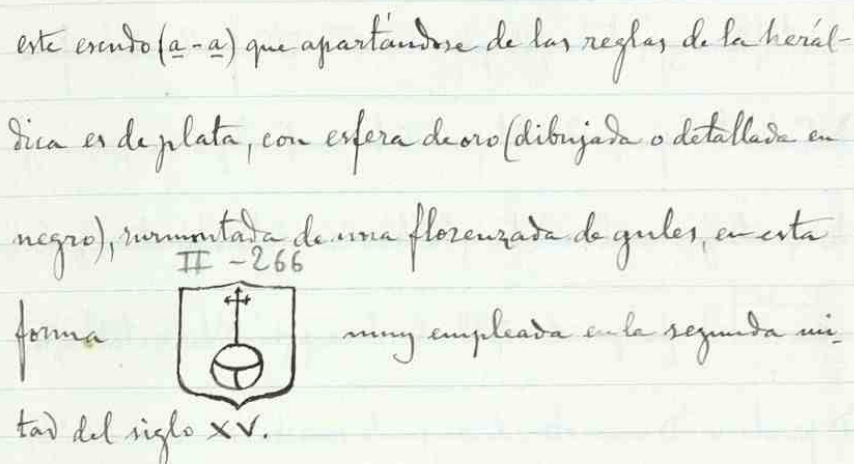 este escudo (a-a) que apartándose de las reglas de la herál-
dica es de plata, con esfera de oro (dibujada o detallada en
negro), surmontada de una florenzada de gules, en esta
II - 266
forma muy empleada en la segunda mi-
tad del siglo XV.